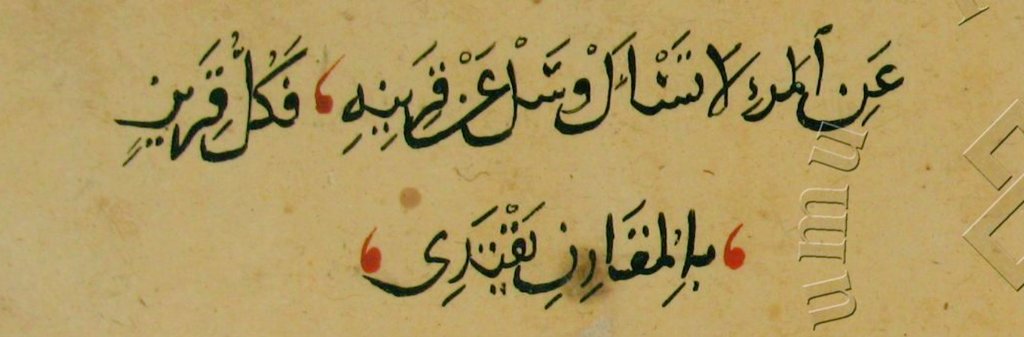 عَنِ ٱلمرءِ لَا تَسْأَلْ وَسَلْ عَنْ قَرِينِهِ ، فَكُلُّ قَرِينٍ
، بِالمُقَارِنِ يَقْتَدِي ،